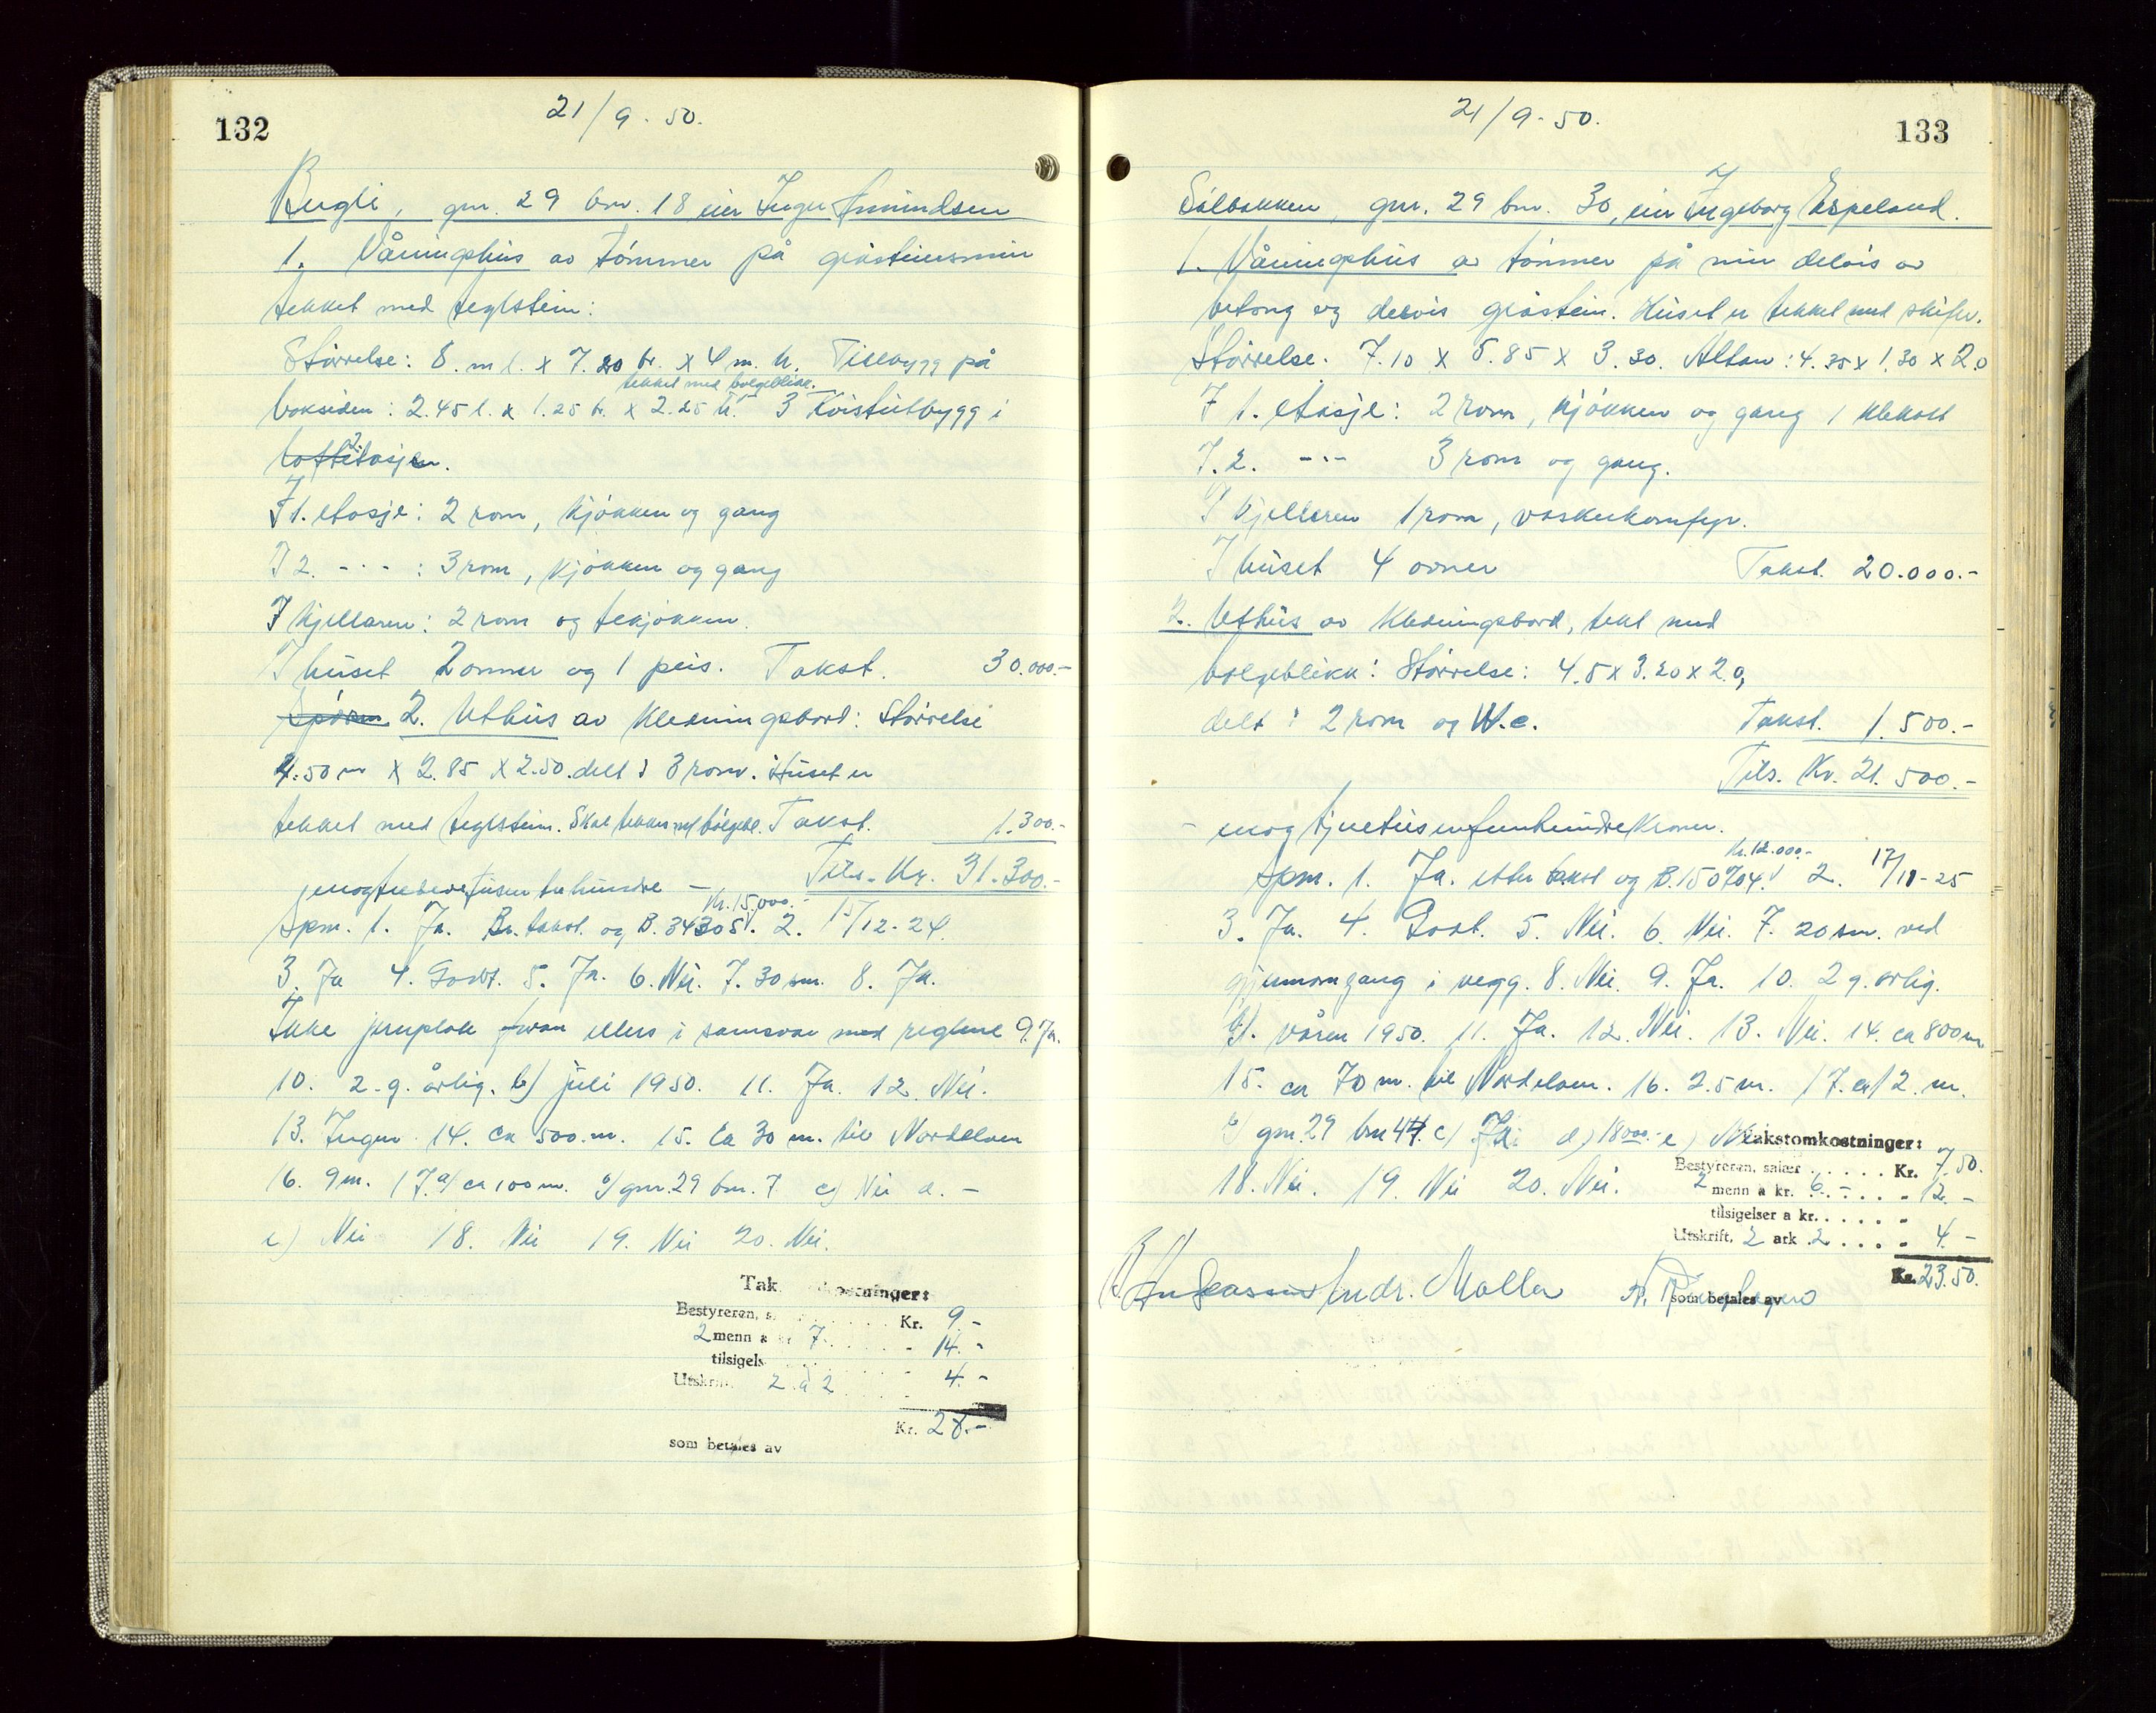 132
21/9. 50.
Bugli, gnr. 29 bnr. 18 eier Inger Amundsen
1. Våningshus av tømmer på gråsteinsmur
tekket med teglstein:
Størrelse: 8. m l. x 7.20 br. x 4 m. h. Tilbygg på
tekket med bølgeblikk.
baksiden: 2.45 l. x 1.25 br. x 2.25 h. 3 Kvistutbygg i
2.
loftetasjen.
I 1. etasje: 2 rom, kjøkken og gang
I 2. -"- : 3 rom, kjøkken og gang
I kjellaren: 2 rom og tekjøkken.
I huset 2 ovner og 1 peis. Takst. 30.000.-
2. Uthus av kledningsbord: Størrelse
4.50 m x 2.85 x 2.50. delt i 3 rom. Huset er
tekket med teglstein. Skal tekkes med bølgebl. Takst. 1.300.-
Tils. Kr. 31.300.-
- enogtredevetusentrehundre -
Kr. 15.000.-
Spm. 1. Ja. Br. takst. og B. 34305. 2. 15/12-24.
3. Ja 4. Godt. 5. Ja. 6. Nei. 7. 30 sm. 8. Ja.
Ikke jernplate foran ellers i samsvar med reglene 9. Ja.
10. 2 g. årlig. b) juli 1950. 11. Ja. 12. Nei.
13. Ingen. 14. ca 500. m. 15. Ca 30 m. til Nordelven
16. 9 m. 17. a) ca 100 m. b) gnr. 29 bnr. 7 c) Nei d. -
e) Nei 18. Nei 19. Nei 20. Nei.
Tak ostninger:
Bestyreren, s. Kr. 9.-
2 menn a kr 7. - 14.-
tilsigels
Utskri. 2 a 2 4.-
Kr. 28.-
som betales av
133
21/9. 50.
Solbakken, gnr. 29 bnr. 30, eier Ingeborg Espeland.
1. Våningshus av tømmer på mur delvis av
betong og delvis gråstein. Huset er tekket med skifer.
Størrelse. 7.10 x 5.85 x 3.30. Altan: 4.35 x 1.30 x 2.0
I 1. etasje: 2 rom, kjøkken og gang 1 klekott
I. 2. -"- 3 rom og gang.
I kjelleren 1 rom, vaskekomfyr.
I huset 4 ovner Takst. 20.000.-
2. Uthus av kledningsbord, tekt med
bølgeblikk: Størrelse: 4.5 x 3.20 x 2.0,
delt i 2 rom og W.c. Takst. 1.500.-
Tils. Kr. 21.500.-
- enogtjuetusenfemhundrekroner.
Kr. 12.000.-
Spm. 1. Ja. etter takst og B. 150704. 2. 17/11-25
3. Ja. 4. Godt. 5. Nei. 6. Nei. 7. 20 sm. ved
gjennomgang i vegg. 8. Nei. 9. Ja. 10. 2 g. årlig.
b). våren 1950. 11. Ja. 12. Nei. 13. Nei. 14. ca 800 m
15. ca 70 m. til Nordelven. 16. 2.5 m. 17. ca 12. m.
b) gnr. 29 bnr 44. c) Ja. d) 18000.- e)
18. Nei. 19. Nei 20. Nei.
Takstomkostninger:
Bestyreren, salær . . . . . Kr. 7.50.
2 menn a kr. 6.- . . . - 12.-
tilsigelser a kr. . . . . . -
Utskrift, 2 ark 2 . . . . - 4.-
Kr. 23.50.
som betales av
Andr. Molla